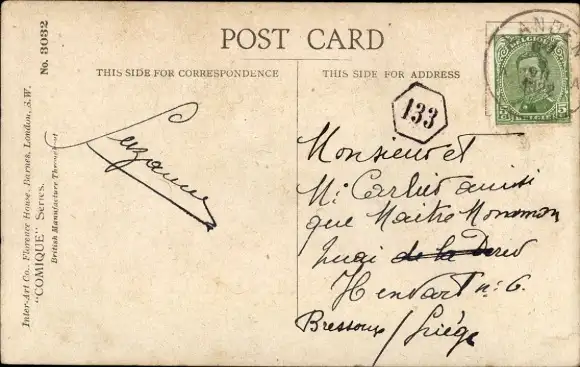 POST CARD
THIS SIDE FOR CORRESPONDENCE
THIS SIDE FOR ADDRESS
No. 3032
Inter-Art Co., Florence House, Barnes, London, S.W.
"COMIQUE" Series.
British Manufacture Throughout
133
Suzanne
Monsieur et
Carlier ainsi
que Maitre Monsson
quai de la Derev
Henvart n: 6.
Bressoux / Liége